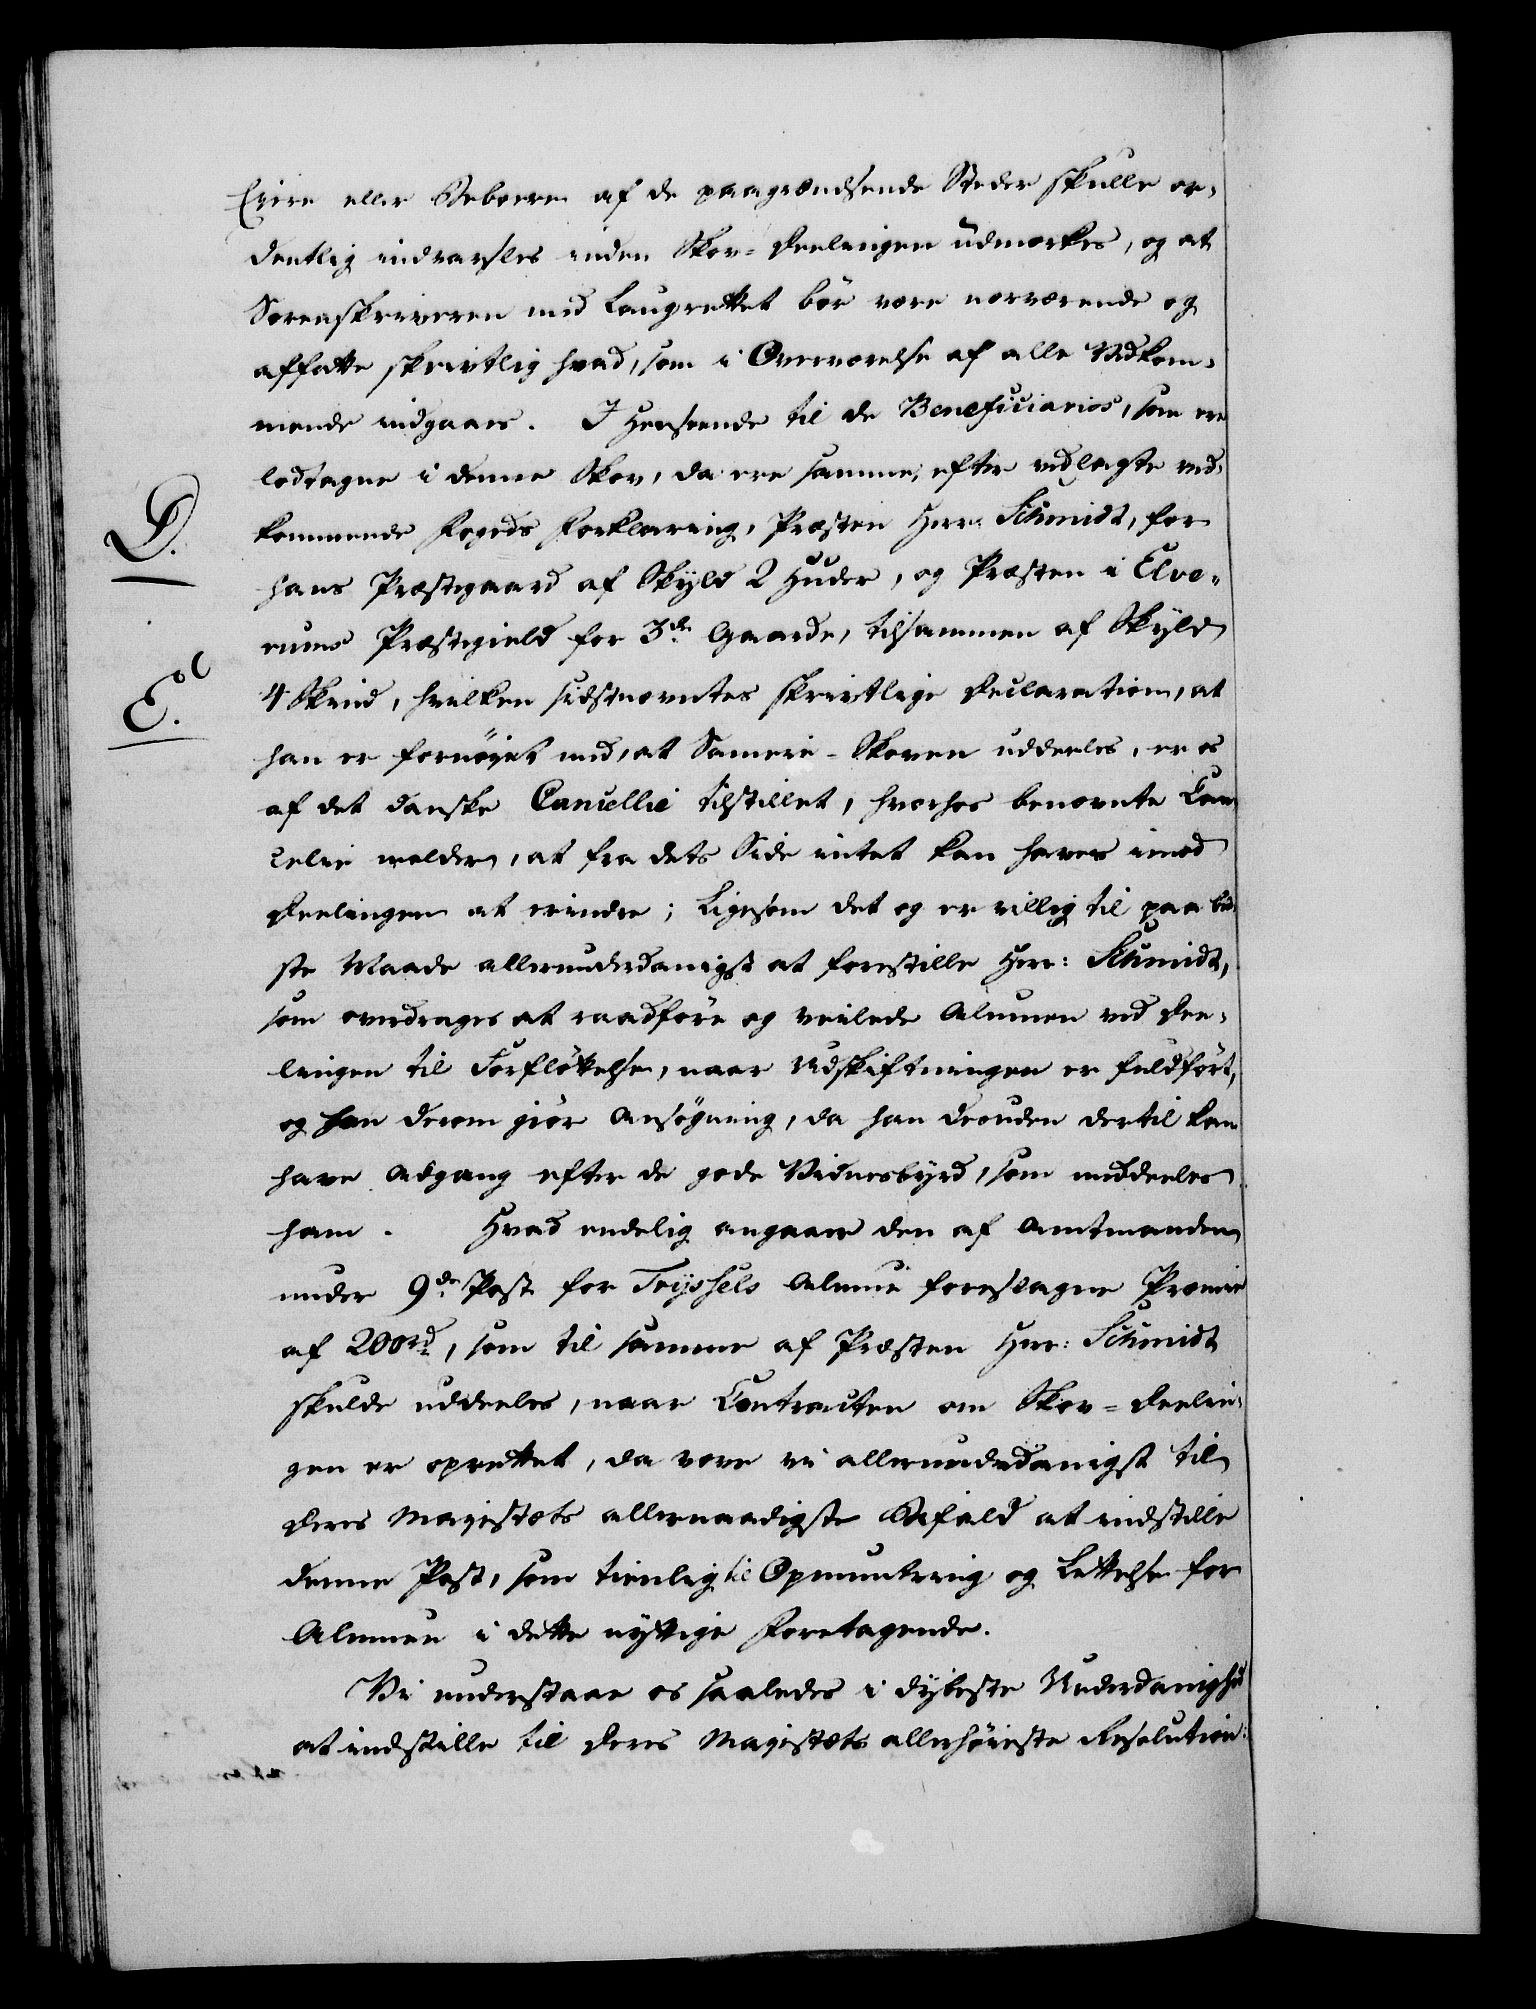 Eiere eller Beboere af de paagrændsende Steder skulle or-
dentlig indvarsles inden Skov-Deelingen udmærkes, og at
Sorenskriveren med Laugrettet bör være nærværende og
affatte skrivtlig hvad, som i Overværelse af alle Vedkom-
mende indgaaes. I Henseende til de Beneficiarios, som ere
lodtagne i denne Skov, da ere samme, efter vedlagte ved-
D. kommende Fogeds Forklaring, Præsten Herr Schmidt, for
hans Præstegaard af Skyld 2 Huder, og Præsten i Elve-
rums Præstegield for 3de Gaarde, tilsammen af Skyld
E. 4 Skind, hvilken sidstnævntes skrivtlige Declaration, at
han er fornöyet med, at Sameie-Skoven uddeeles, er os
af det danske Cancellie tilstillet, hvorhos benævnte Can-
celie melder, at fra dets Side intet kan haves imod
Deelingen at erindre; Ligesom det og er villig til paa be-
ste Maade allerunderdanigst at forestille Herr: Schmidt,
som overdrages at raadföre og veilede Almuen ved Dee-
lingen til Forfløttelse, naar Udskiftningen er fuldfört,
og han derom giör Ansögning, da han desuden dertil kan
have Adgang efter de gode Vidnesbyrd, som meddeeles
ham. Hvad endelig angaaer den af Amtmanden
under 9de Post for Tryssels Almue foreslagne Præmie
af 200 rd, som til samme af Præsten Herr: Schmidt
skulde uddeeles, naar Contracten om Skov-Deelin-
gen er oprettet, da vove vi allerunderdanigst til
Deres Majestæts allernaadigste Bifald at indstille
denne Post, som tienlig til Opmuntring og Lettelse for
Almuen i dette nyttige Foretagende.
Vi understaae os saaledes i dybeste Underdanighed
at indstille til Deres Majestæts allerhöieste Resolution: